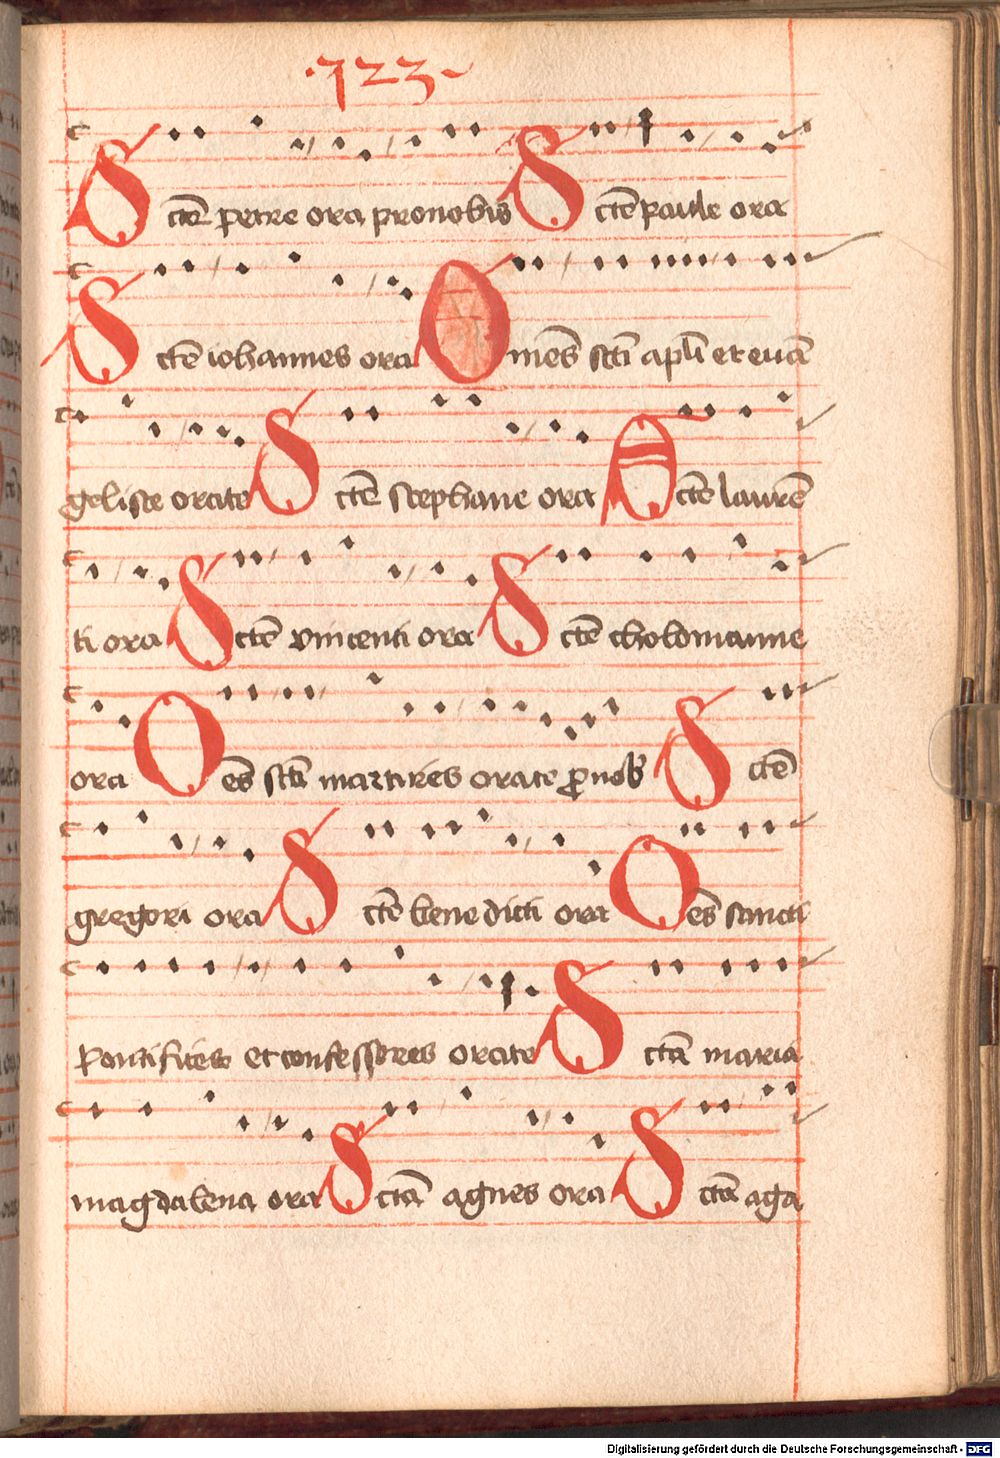 ·723·
Sctē petre ora pro nobis Sctē paule ora
Sctē iohannes ora Om̄es sctī apl̄i et euā
geliste orate Sctē stephane ora Sctē laurē
ti ora Sctē vincenti ora Sctē cholomanne
ora Oēs sctī martires orate ꝓ nob̄ Sctē
gregori ora Sctē benedicti ora Oēs sancti
Pontifices et confessores orate Sctā maria
magdalena ora Sctā agnes ora Sctā aga
Digitalisierung gefördert durch die Deutsche Forschungsgemeinschaft - DFG